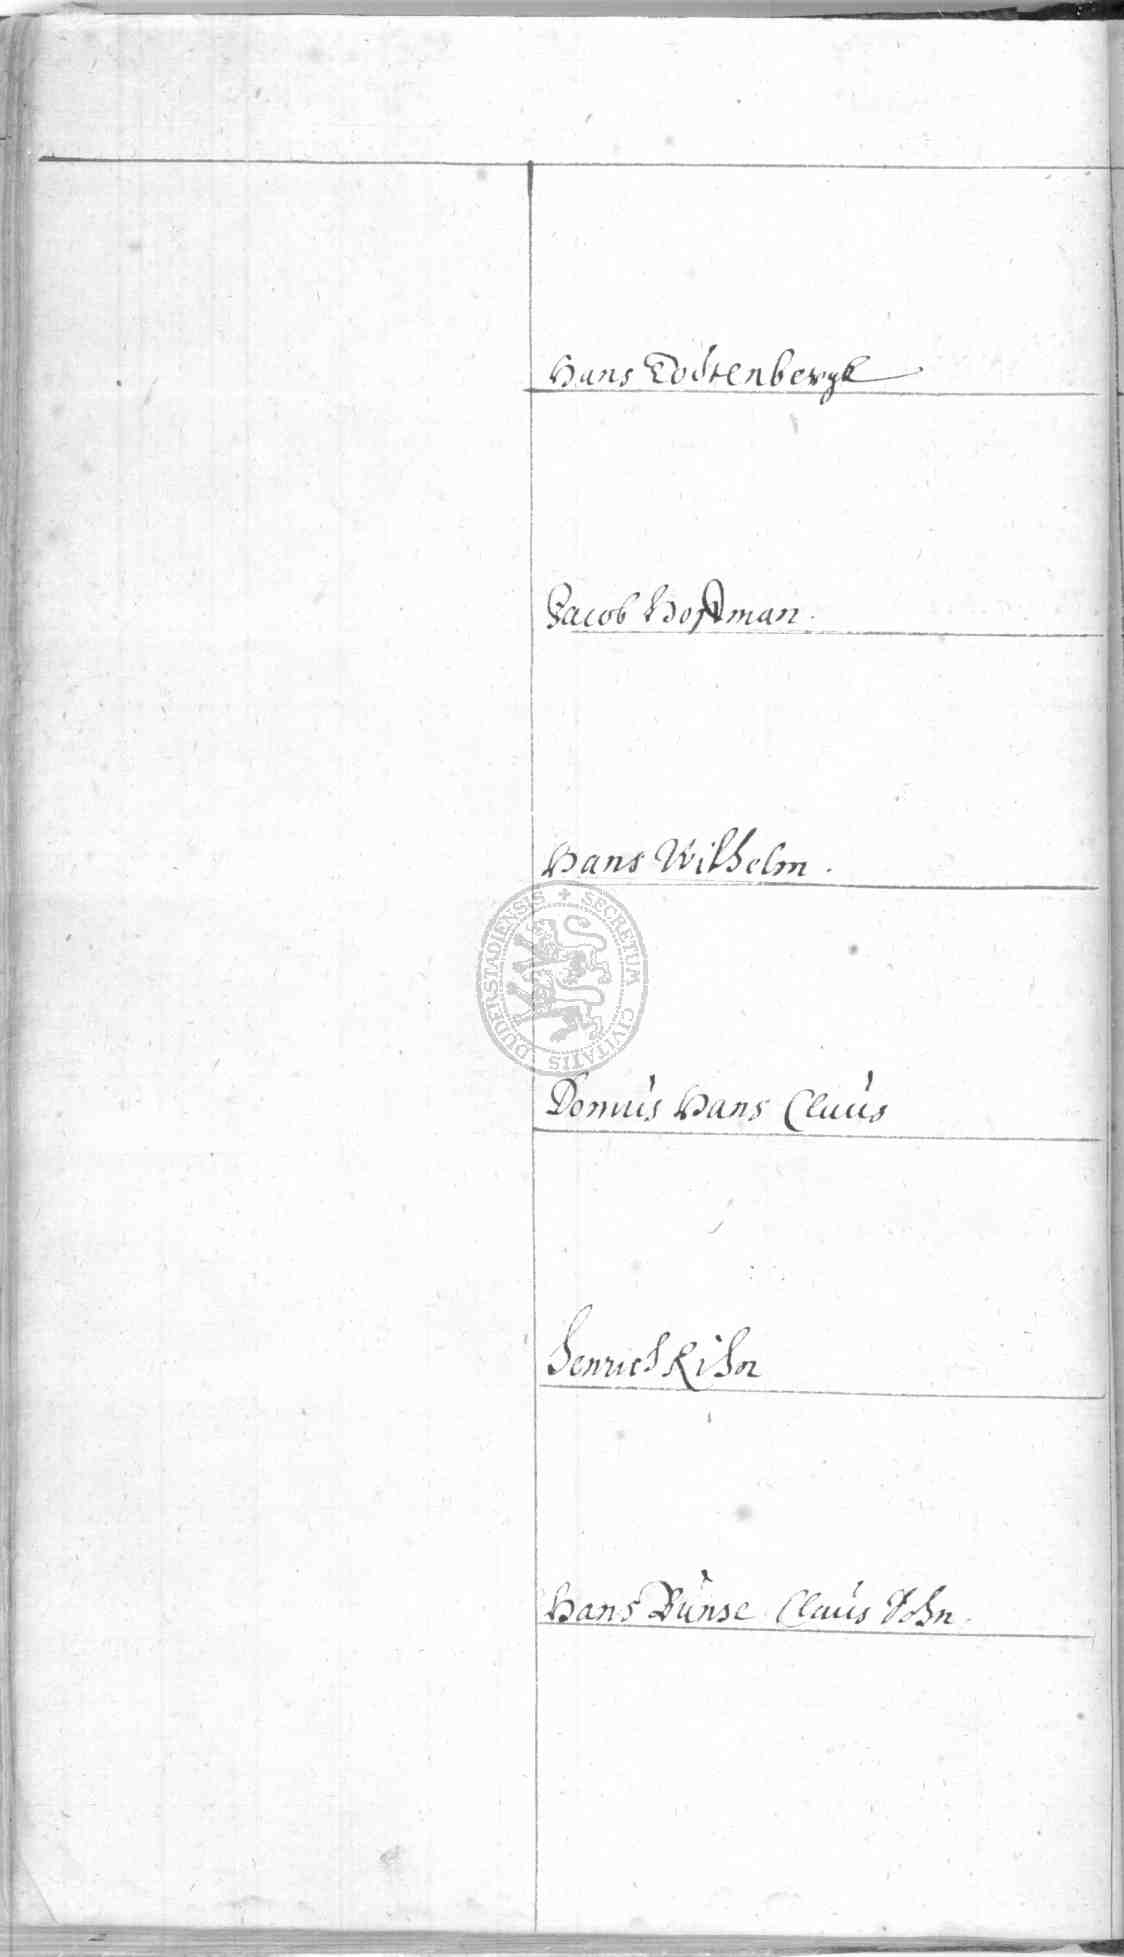 Hans Todtenbergk
Jacob Hoffman.
Hans Wilhelm.
SECRETUM CIVITATIS DUDERSTADIENSIS
Domus Hans Claus
Henrich Kihn
Hans Bunse Claus Sohn.